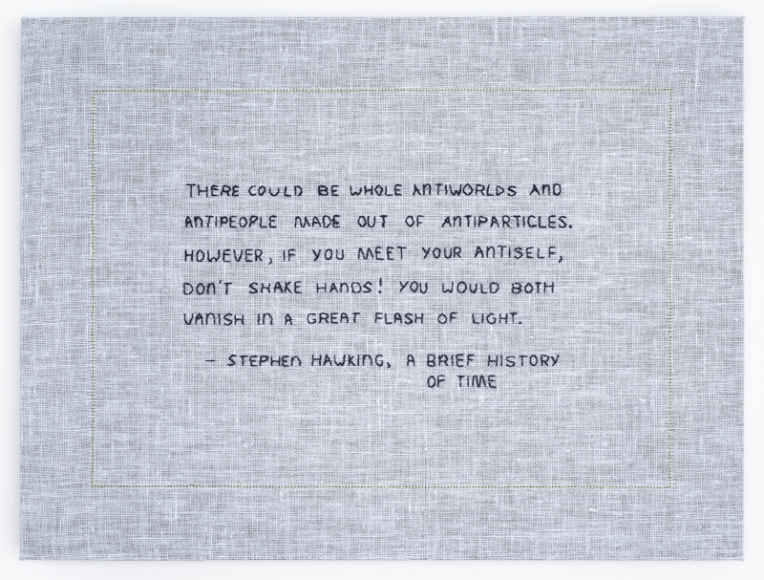 THERE COULD BE WHOLE ANTIWORLDS AND
ANTIPEOPLE MADE OUT OF ANTIPARTICLES.
HOWEVER, IF YOU MEET YOUR ANTISELF,
DON'T SHAKE HANDS! YOU WOULD BOTH
VANISH IN A GREAT FLASH OF LIGHT.
- STEPHEN HAWKING, A BRIEF HISTORY
OF TIME